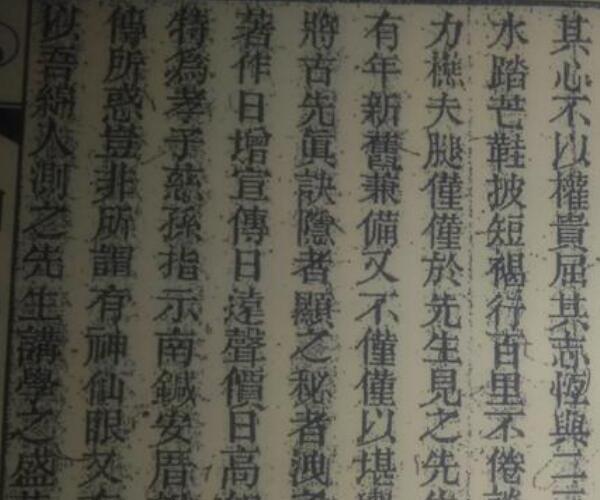 其心不以權貴屈其志恆與二三
水踏芒鞋披短褐行百里不倦
力樵夫腿僅僅於先生見之先生
有年新舊兼備又不僅僅以堪輿
將古先真訣隱者顯之秘者洩之
著作日增宣傳日達聲價日高
特為孝子慈孫指示南鍼安厝
傳所惑豈非所謂有神仙眼又有
以吾綿人測之先生講學之盛